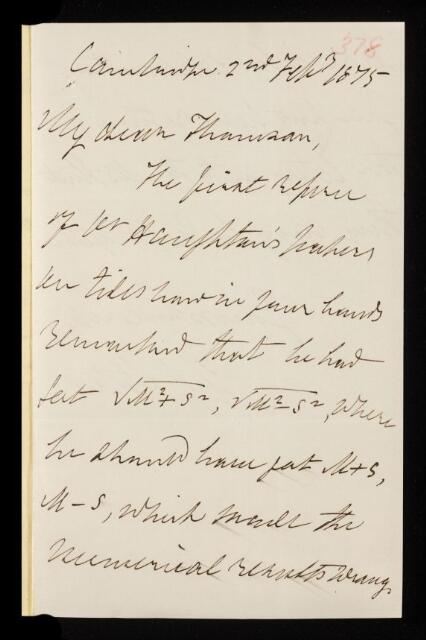 378
Cambridge 2nd Feby 1875
My dear Thomson,
The first referee
of Dr Haughton's papers
on tides now in your hands
remarked that he had
put √M²+S², √M²-S², where
he should have put M+S,
M-S, which made the
numerical results wrong.